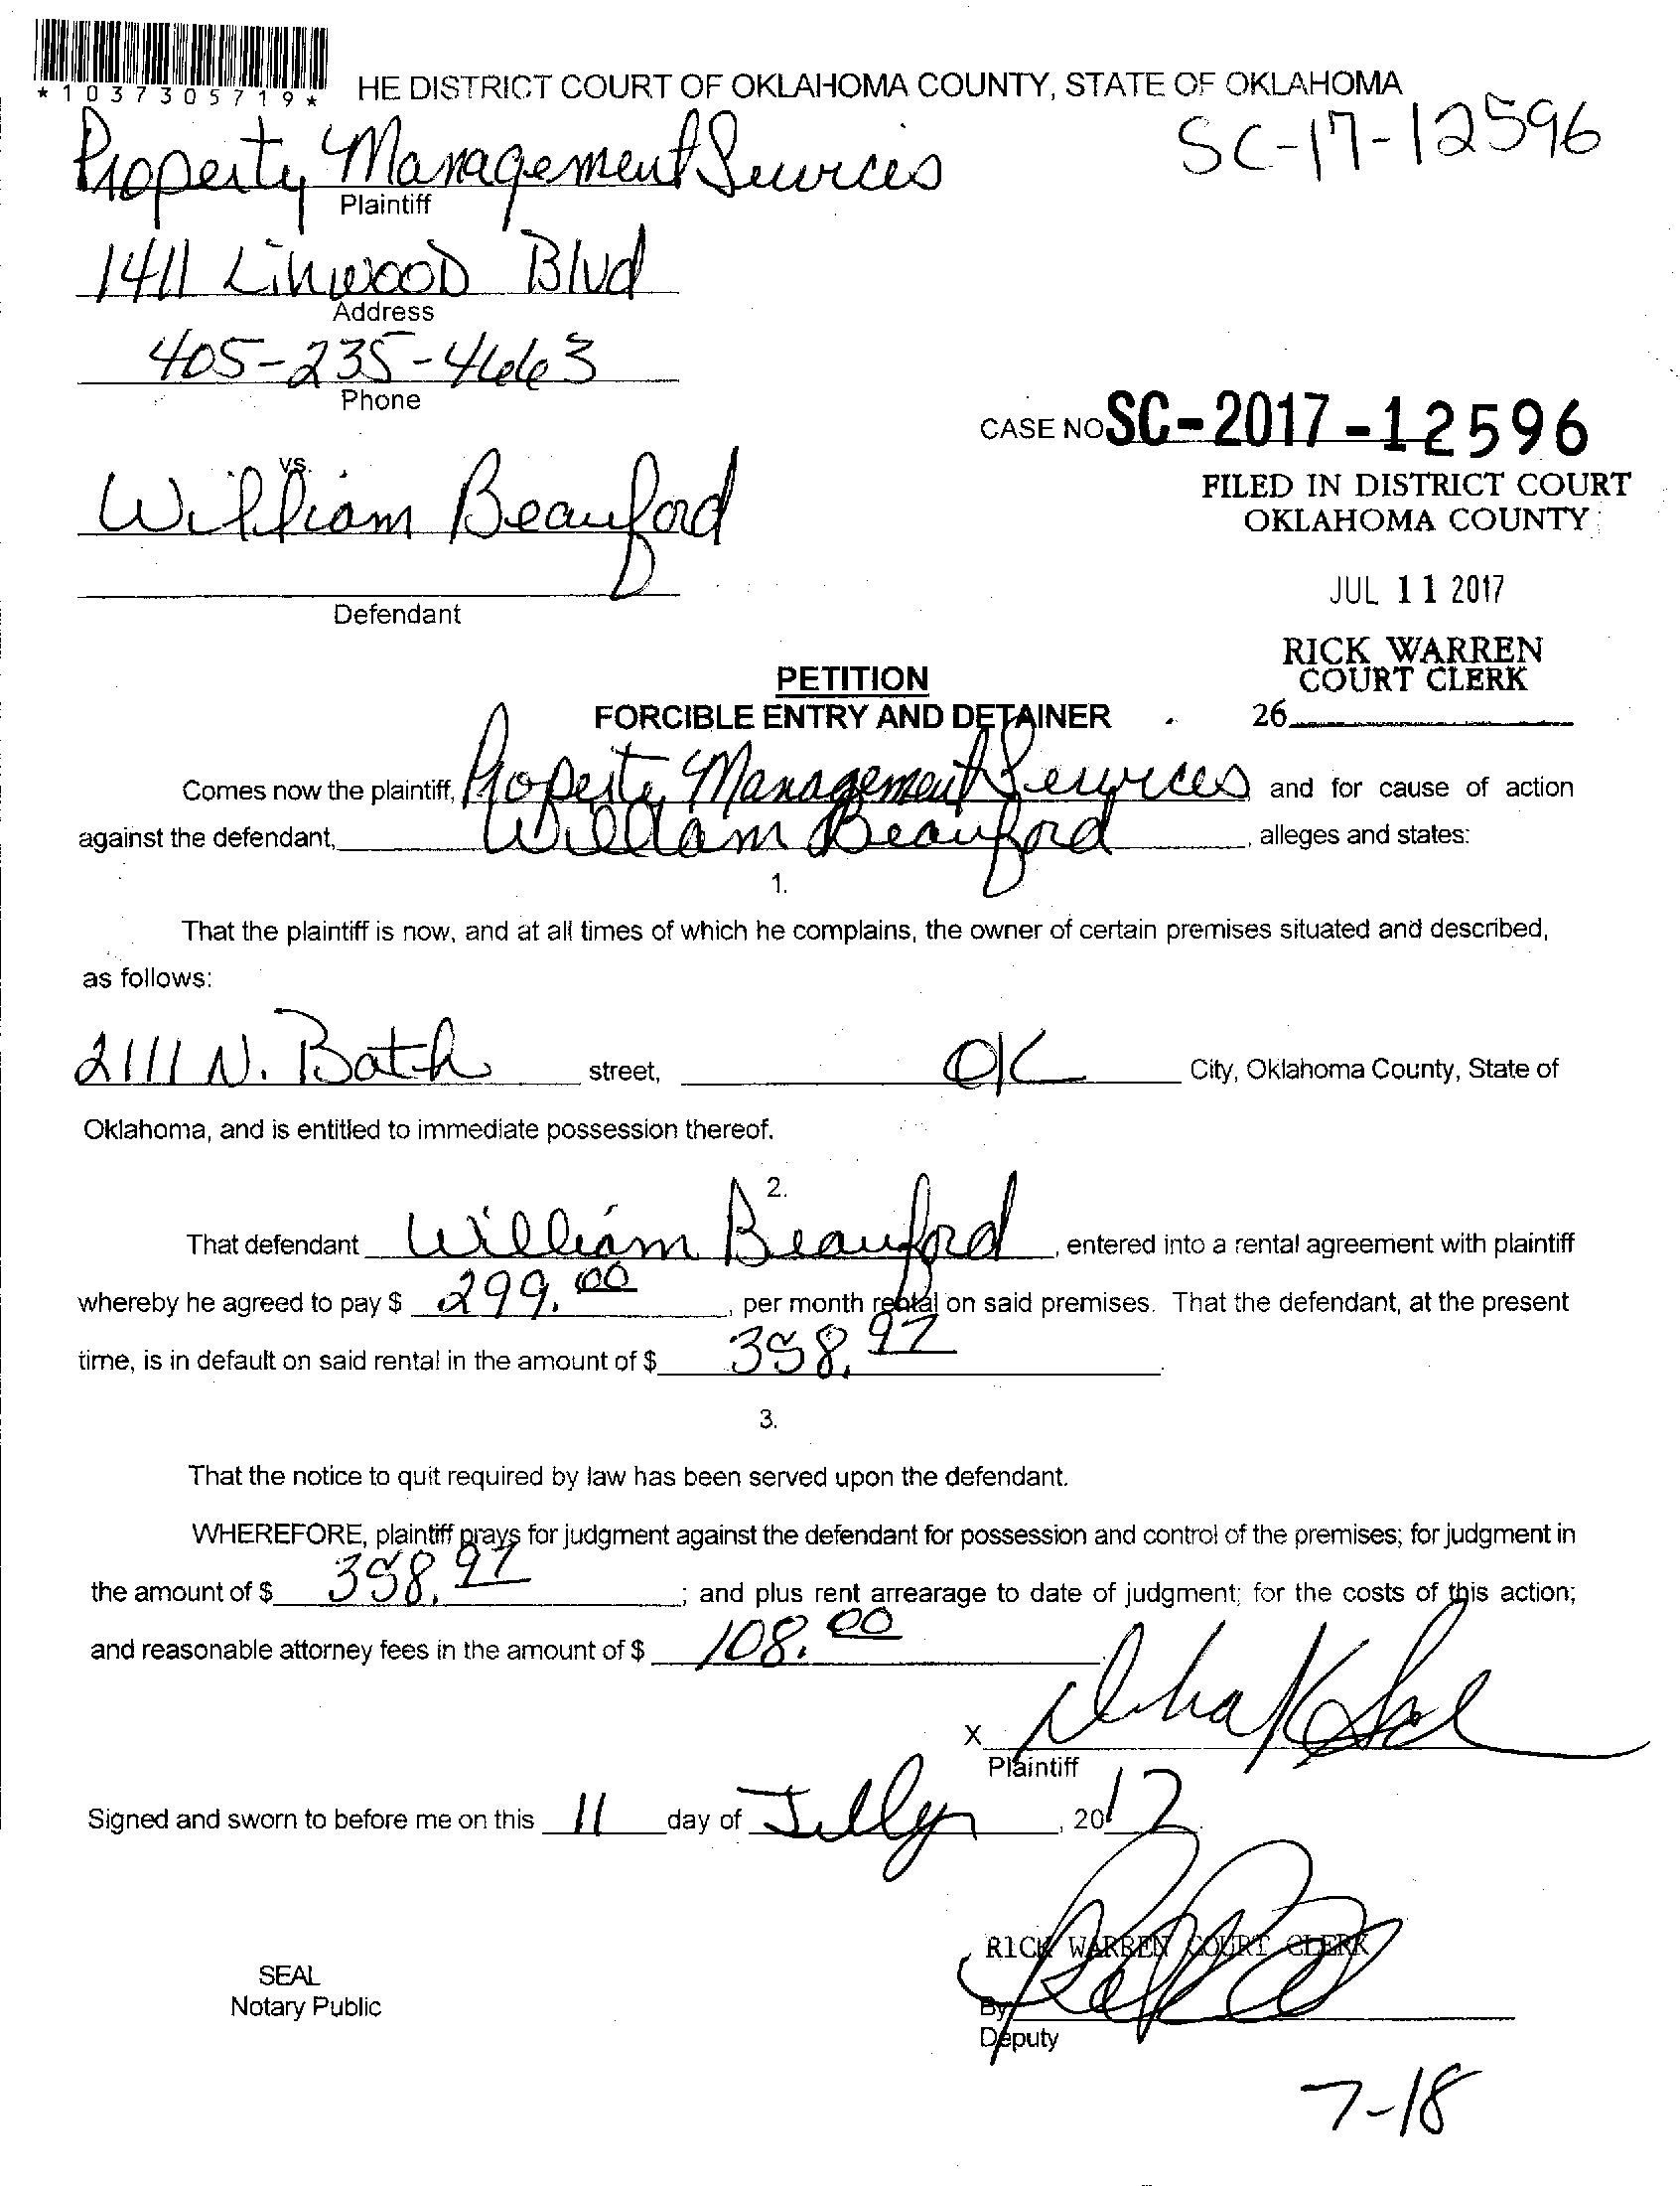 *1037305719*
HE DISTRICT COURT OF OKLAHOMA COUNTY, STATE OF OKLAHOMA
SC-17-12596
Property Management Services
Plaintiff
1411 Linwood Blvd
Address
405-235-4663
Phone
CASE NO SC-2017-12596
FILED IN DISTRICT COURT
OKLAHOMA COUNTY
vs.
William Beauford
JUL 11 2017
Defendant
RICK WARREN
COURT CLERK
26
PETITION
FORCIBLE ENTRY AND DETAINER
Comes now the plaintiff, Property Management Services and for cause of action
against the defendant, William Beauford, alleges and states:
1.
That the plaintiff is now, and at all times of which he complains, the owner of certain premises situated and described,
as follows:
2111 N. Bath street, OK City, Oklahoma County, State of
Oklahoma, and is entitled to immediate possession thereof.
2.
That defendant William Beauford, entered into a rental agreement with plaintiff
whereby he agreed to pay $ 299.00, per month rental on said premises. That the defendant, at the present
time, is in default on said rental in the amount of $ 358.97.
3.
That the notice to quit required by law has been served upon the defendant.
WHEREFORE, plaintiff prays for judgment against the defendant for possession and control of the premises; for judgment in
the amount of $ 358.97; and plus rent arrearage to date of judgment; for the costs of this action;
and reasonable attorney fees in the amount of $ 108.00.
X
Plaintiff
Signed and sworn to before me on this 11 day of July, 2017.
RICK WARREN COURT CLERK
SEAL
Notary Public
By
Deputy
7-18